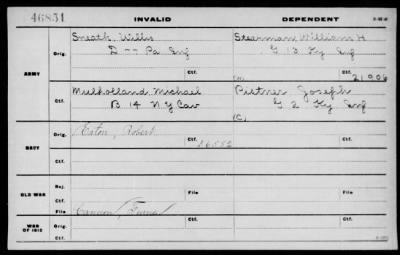 46851 INVALID DEPENDENT
Sneath, Willis Stearman, William H
Orig. D -- Pa Inf G 13 Ky Inf
ARMY Ctf. Ctf. 21906
Mulholland, Michael Pittner, Joseph
B 14 N.Y Cav G 2 Ky Inf
Ctf. (C)
Orig. Eaton, Robert Orig.
NAVY
Ctf. Ctf.
Rej.
OLD WAR Ctf. File File
File Cannon,
WAR OF 1812 Orig. Orig.
Ctf. Ctf.